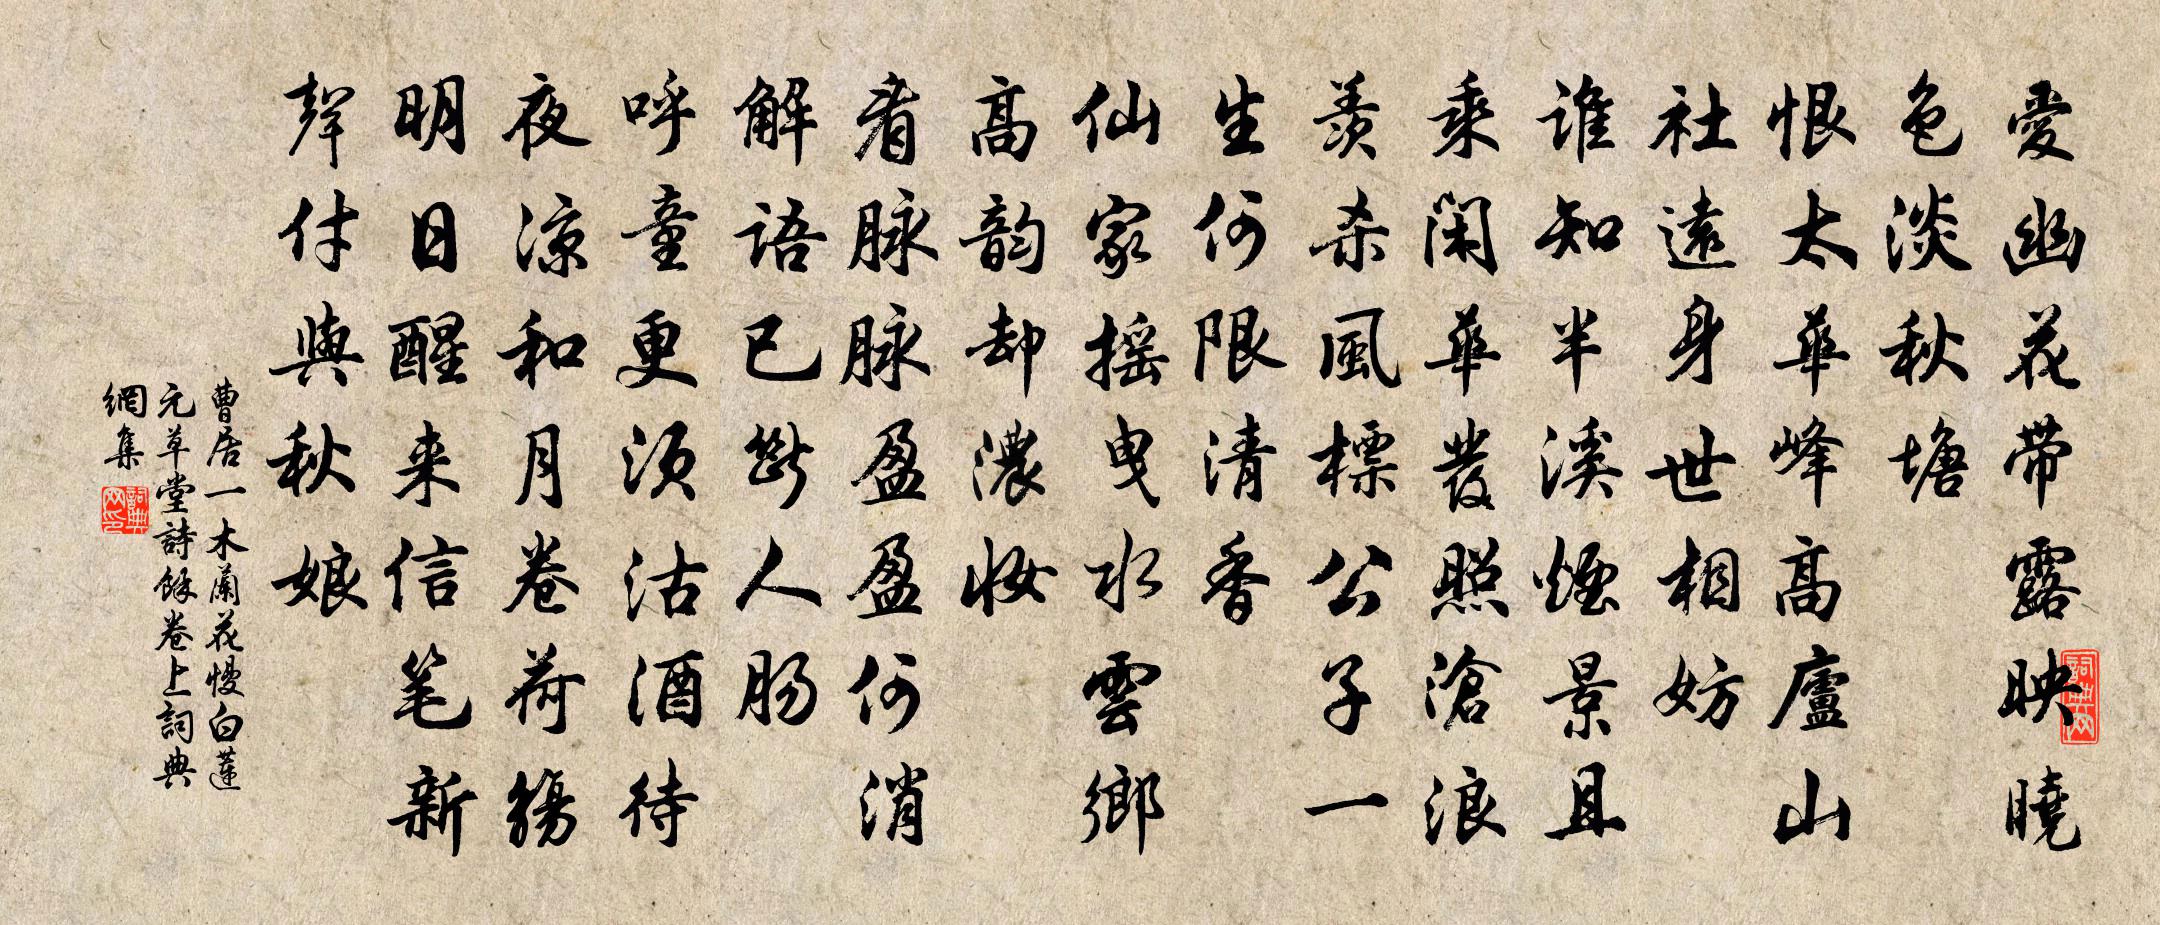 愛幽花帶露映曉
色淡秋塘
恨太華峰高廬山
社遠身世相妨
誰知半溪煙景且
乘閑華發照滄浪
羨殺風標公子一
生何限清香
仙家搖曳水雲鄉
高韵却濃妝
看脉脉盈盈何消
解語已斷人腸
呼童更須沽酒待
夜涼和月卷荷觴
明日醒来信笔新
聲付與秋娘
曹居一木蘭花慢白蓮
元草堂詩餘卷上詞典
網集
詞典网
詞典网印